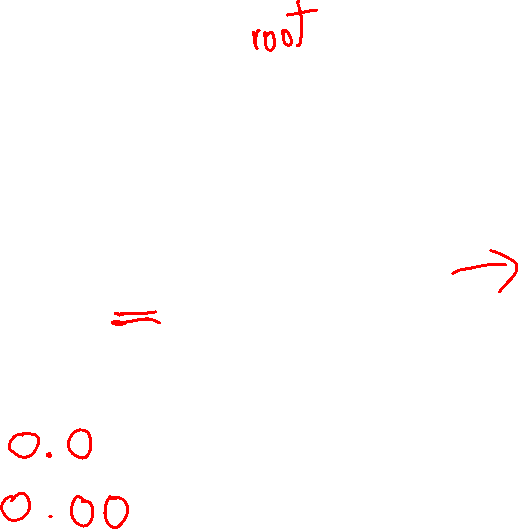 root
→
=
0.0
0.00